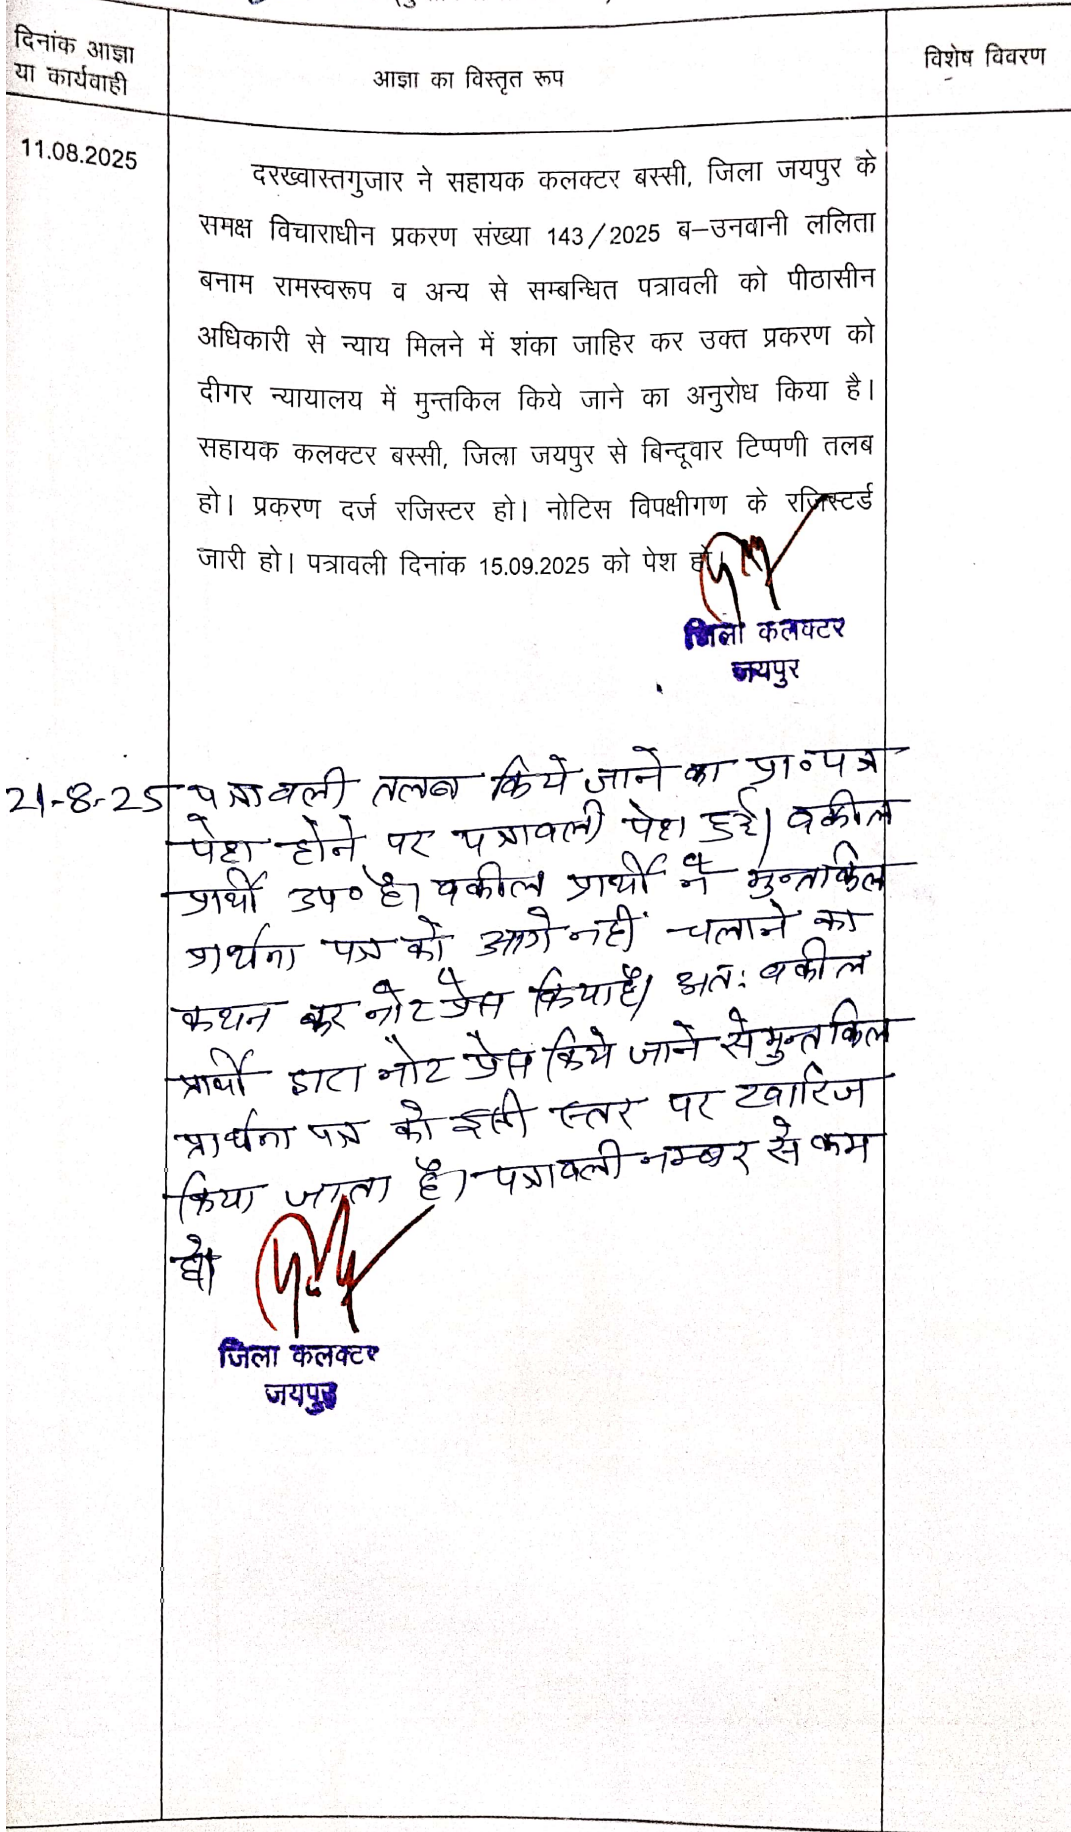 दिनांक आज्ञा
या कार्यवाही
आज्ञा का विस्तृत रूप
विशेष विवरण
11.08.2025
दरख्वास्तगुजार ने सहायक कलक्टर बस्सी, जिला जयपुर के
समक्ष विचाराधीन प्रकरण संख्या 143/2025 ब-उनवानी ललिता
बनाम रामस्वरूप व अन्य से सम्बन्धित पत्रावली को पीठासीन
अधिकारी से न्याय मिलने में शंका जाहिर कर उक्त प्रकरण को
दीगर न्यायालय में मुन्तकिल किये जाने का अनुरोध किया है।
सहायक कलक्टर बस्सी, जिला जयपुर से बिन्दूवार टिप्पणी तलब
हो। प्रकरण दर्ज रजिस्टर हो। नोटिस विपक्षीगण के रजिस्टर्ड
जारी हो। पत्रावली दिनांक 15.09.2025 को पेश हो।
जिला कलक्टर
जयपुर
21-8-25 पत्रावली तलब किये जाने का प्रा०पत्र
पेश होने पर पत्रावली पेश हुई। वकील
प्रार्थी उप० है। वकील प्रार्थी ने मुन्तकिल
प्रार्थना पत्र को आगे नहीं चलाने का
कथन कर नोट प्रेस किया है। अतः वकील
प्रार्थी द्वारा नोट प्रेस किये जाने से मुन्तकिल
प्रार्थना पत्र को इसी स्तर पर खारिज
किया जाता है। पत्रावली नम्बर से कम
हो।
जिला कलक्टर
जयपुर